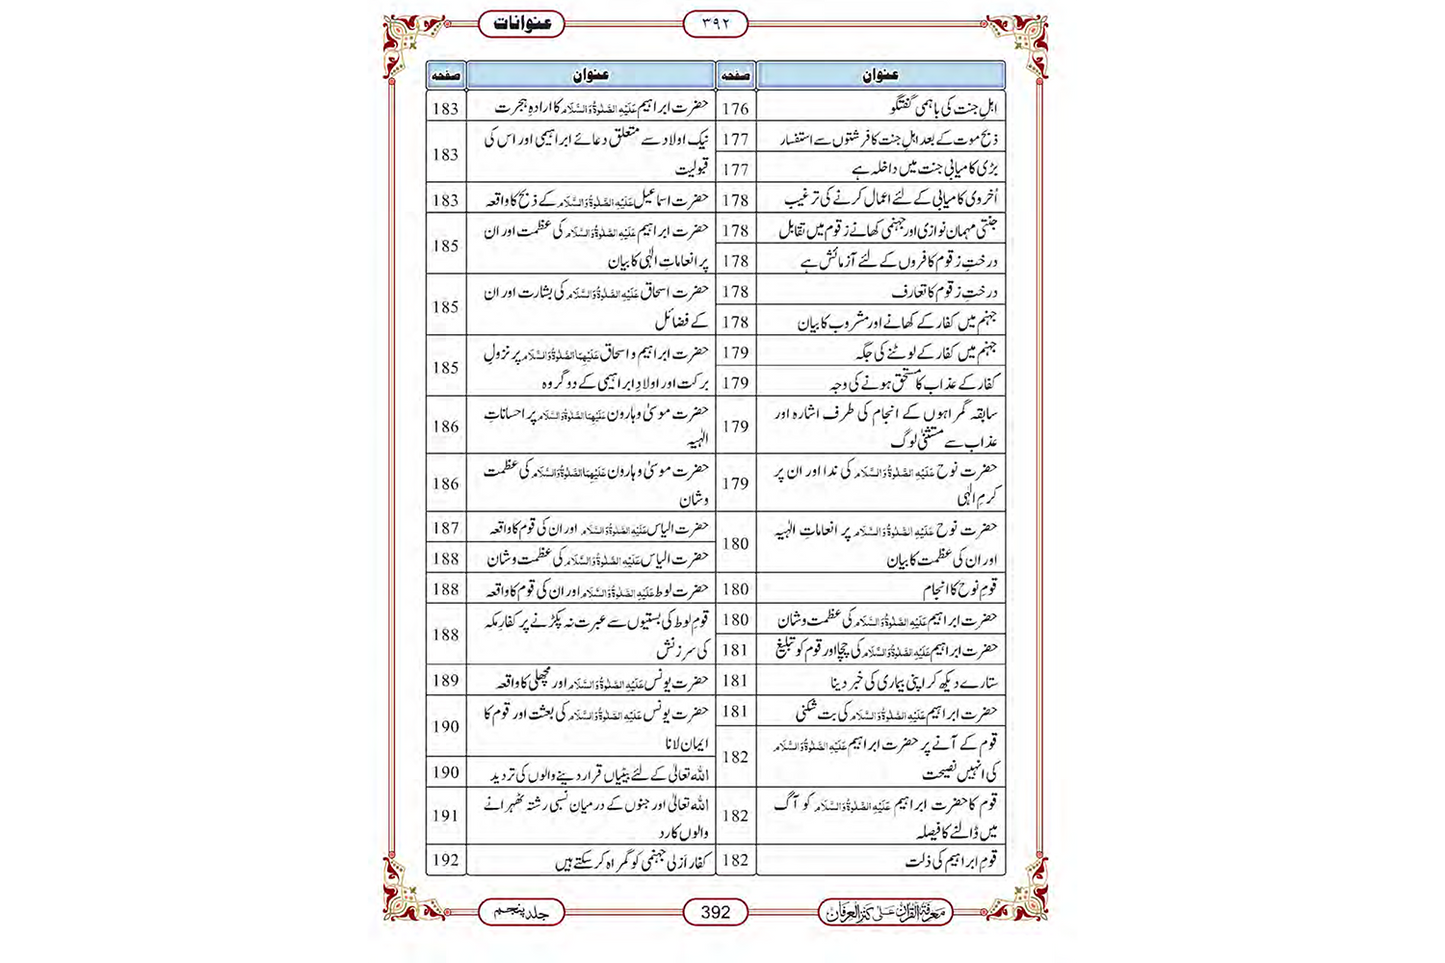 عنوانات
۳۹۲
عنوان صفحہ
اہلِ جنت کی باہمی گفتگو 176
ذبحِ موت کے بعد اہلِ جنت کا فرشتوں سے استفسار 177
بڑی کامیابی جنت میں داخلہ ہے 177
اُخروی کامیابی کے لئے اعمال کرنے کی ترغیب 178
جنتی مہمان نوازی اور جہنمی کھانے زقوم میں تقابل 178
درختِ زقوم کافروں کے لئے آزمائش ہے 178
درختِ زقوم کا تعارف 178
جہنم میں کفار کے کھانے اور مشروب کا بیان 178
جہنم میں کفار کے لوٹنے کی جگہ 179
کفار کے عذاب کا مستحق ہونے کی وجہ 179
سابقہ گمراہوں کے انجام کی طرف اشارہ اور
عذاب سے مستثنیٰ لوگ 179
حضرت نوح عَلَیْہِ الصَّلٰوۃُ وَالسَّلَام کی ندا اور ان پر
کرمِ الٰہی 179
حضرت نوح عَلَیْہِ الصَّلٰوۃُ وَالسَّلَام پر انعاماتِ الٰہیہ
اور ان کی عظمت کا بیان 180
قومِ نوح کا انجام 180
حضرت ابراہیم عَلَیْہِ الصَّلٰوۃُ وَالسَّلَام کی عظمت و شان 180
حضرت ابراہیم عَلَیْہِ الصَّلٰوۃُ وَالسَّلَام کی چچا اور قوم کو تبلیغ 181
ستارے دیکھ کر اپنی بیماری کی خبر دینا 181
حضرت ابراہیم عَلَیْہِ الصَّلٰوۃُ وَالسَّلَام کی بت شکنی 181
قوم کے آنے پر حضرت ابراہیم عَلَیْہِ الصَّلٰوۃُ وَالسَّلَام
کی انہیں نصیحت 182
قوم کا حضرت ابراہیم عَلَیْہِ الصَّلٰوۃُ وَالسَّلَام کو آگ
میں ڈالنے کا فیصلہ 182
قومِ ابراہیم کی ذلت 182
عنوان صفحہ
حضرت ابراہیم عَلَیْہِ الصَّلٰوۃُ وَالسَّلَام کا ارادۂ ہجرت 183
نیک اولاد سے متعلق دعائے ابراہیمی اور اس کی
قبولیت 183
حضرت اسماعیل عَلَیْہِ الصَّلٰوۃُ وَالسَّلَام کے ذبح کا واقعہ 183
حضرت ابراہیم عَلَیْہِ الصَّلٰوۃُ وَالسَّلَام کی عظمت اور ان
پر انعاماتِ الٰہی کا بیان 185
حضرت اسحاق عَلَیْہِ الصَّلٰوۃُ وَالسَّلَام کی بشارت اور ان
کے فضائل 185
حضرت ابراہیم و اسحاق عَلَیْہِمَا الصَّلٰوۃُ وَالسَّلَام پر نزولِ
برکت اور اولادِ ابراہیمی کے دو گروہ 185
حضرت موسیٰ و ہارون عَلَیْہِمَا الصَّلٰوۃُ وَالسَّلَام پر احساناتِ
الٰہیہ 186
حضرت موسیٰ و ہارون عَلَیْہِمَا الصَّلٰوۃُ وَالسَّلَام کی عظمت
و شان 186
حضرت الیاس عَلَیْہِ الصَّلٰوۃُ وَالسَّلَام اور ان کی قوم کا واقعہ 187
حضرت الیاس عَلَیْہِ الصَّلٰوۃُ وَالسَّلَام کی عظمت و شان 188
حضرت لوط عَلَیْہِ الصَّلٰوۃُ وَالسَّلَام اور ان کی قوم کا واقعہ 188
قومِ لوط کی بستیوں سے عبرت نہ پکڑنے پر کفارِ مکہ
کی سرزنش 188
حضرت یونس عَلَیْہِ الصَّلٰوۃُ وَالسَّلَام اور مچھلی کا واقعہ 189
حضرت یونس عَلَیْہِ الصَّلٰوۃُ وَالسَّلَام کی بعثت اور قوم کا
ایمان لانا 190
اللہ تعالیٰ کے لئے بیٹیاں قرار دینے والوں کی تردید 190
اللہ تعالیٰ اور جنوں کے درمیان نسبی رشتہ ٹھہرانے
والوں کا رد 191
کفار اَزلی جہنمی کو گمراہ کر سکتے ہیں 192
معرفۃ القرآن علیٰ کنز العرفان
392
جلد پنجم